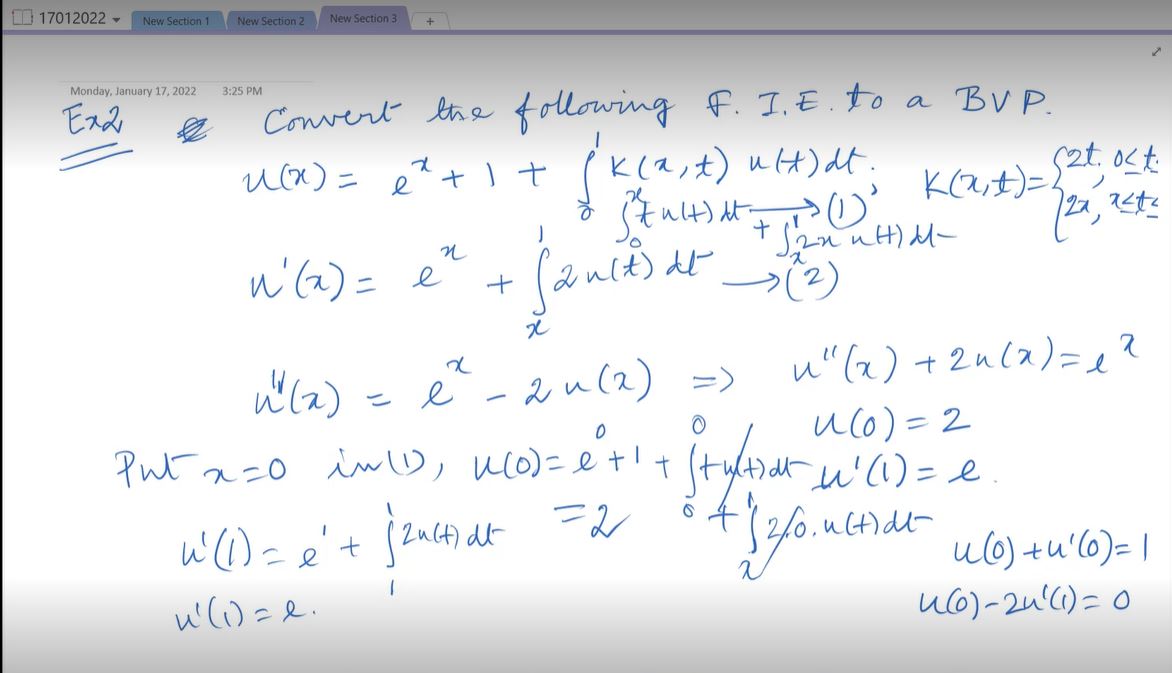 17012022 New Section 1 New Section 2 New Section 3 +
Monday, January 17, 2022 3:25 PM
Ex2 Convert the following F. I. E. to a BVP.
u(x) = e^x + 1 + ∫_0^1 K(x,t) u(t) dt; K(x,t) = {2t, 0≤t
{2x, x≤t≤
∫_0^x t u(t) dt + ∫_x^1 2x u(t) dt → (1)
u'(x) = e^x + ∫_x^1 2u(t) dt → (2)
u''(x) = e^x - 2u(x) => u''(x) + 2u(x) = e^x
u(0) = 2
Put x=0 in (1), u(0) = e^0 + 1 + ∫_0^0 t u(t) dt u'(1) = e.
+ ∫_x^1 2/0. u(t) dt
= 2
u'(1) = e^1 + ∫_1^1 2u(t) dt
u(0) + u'(0) = 1
u'(1) = e.
u(0) - 2u'(1) = 0